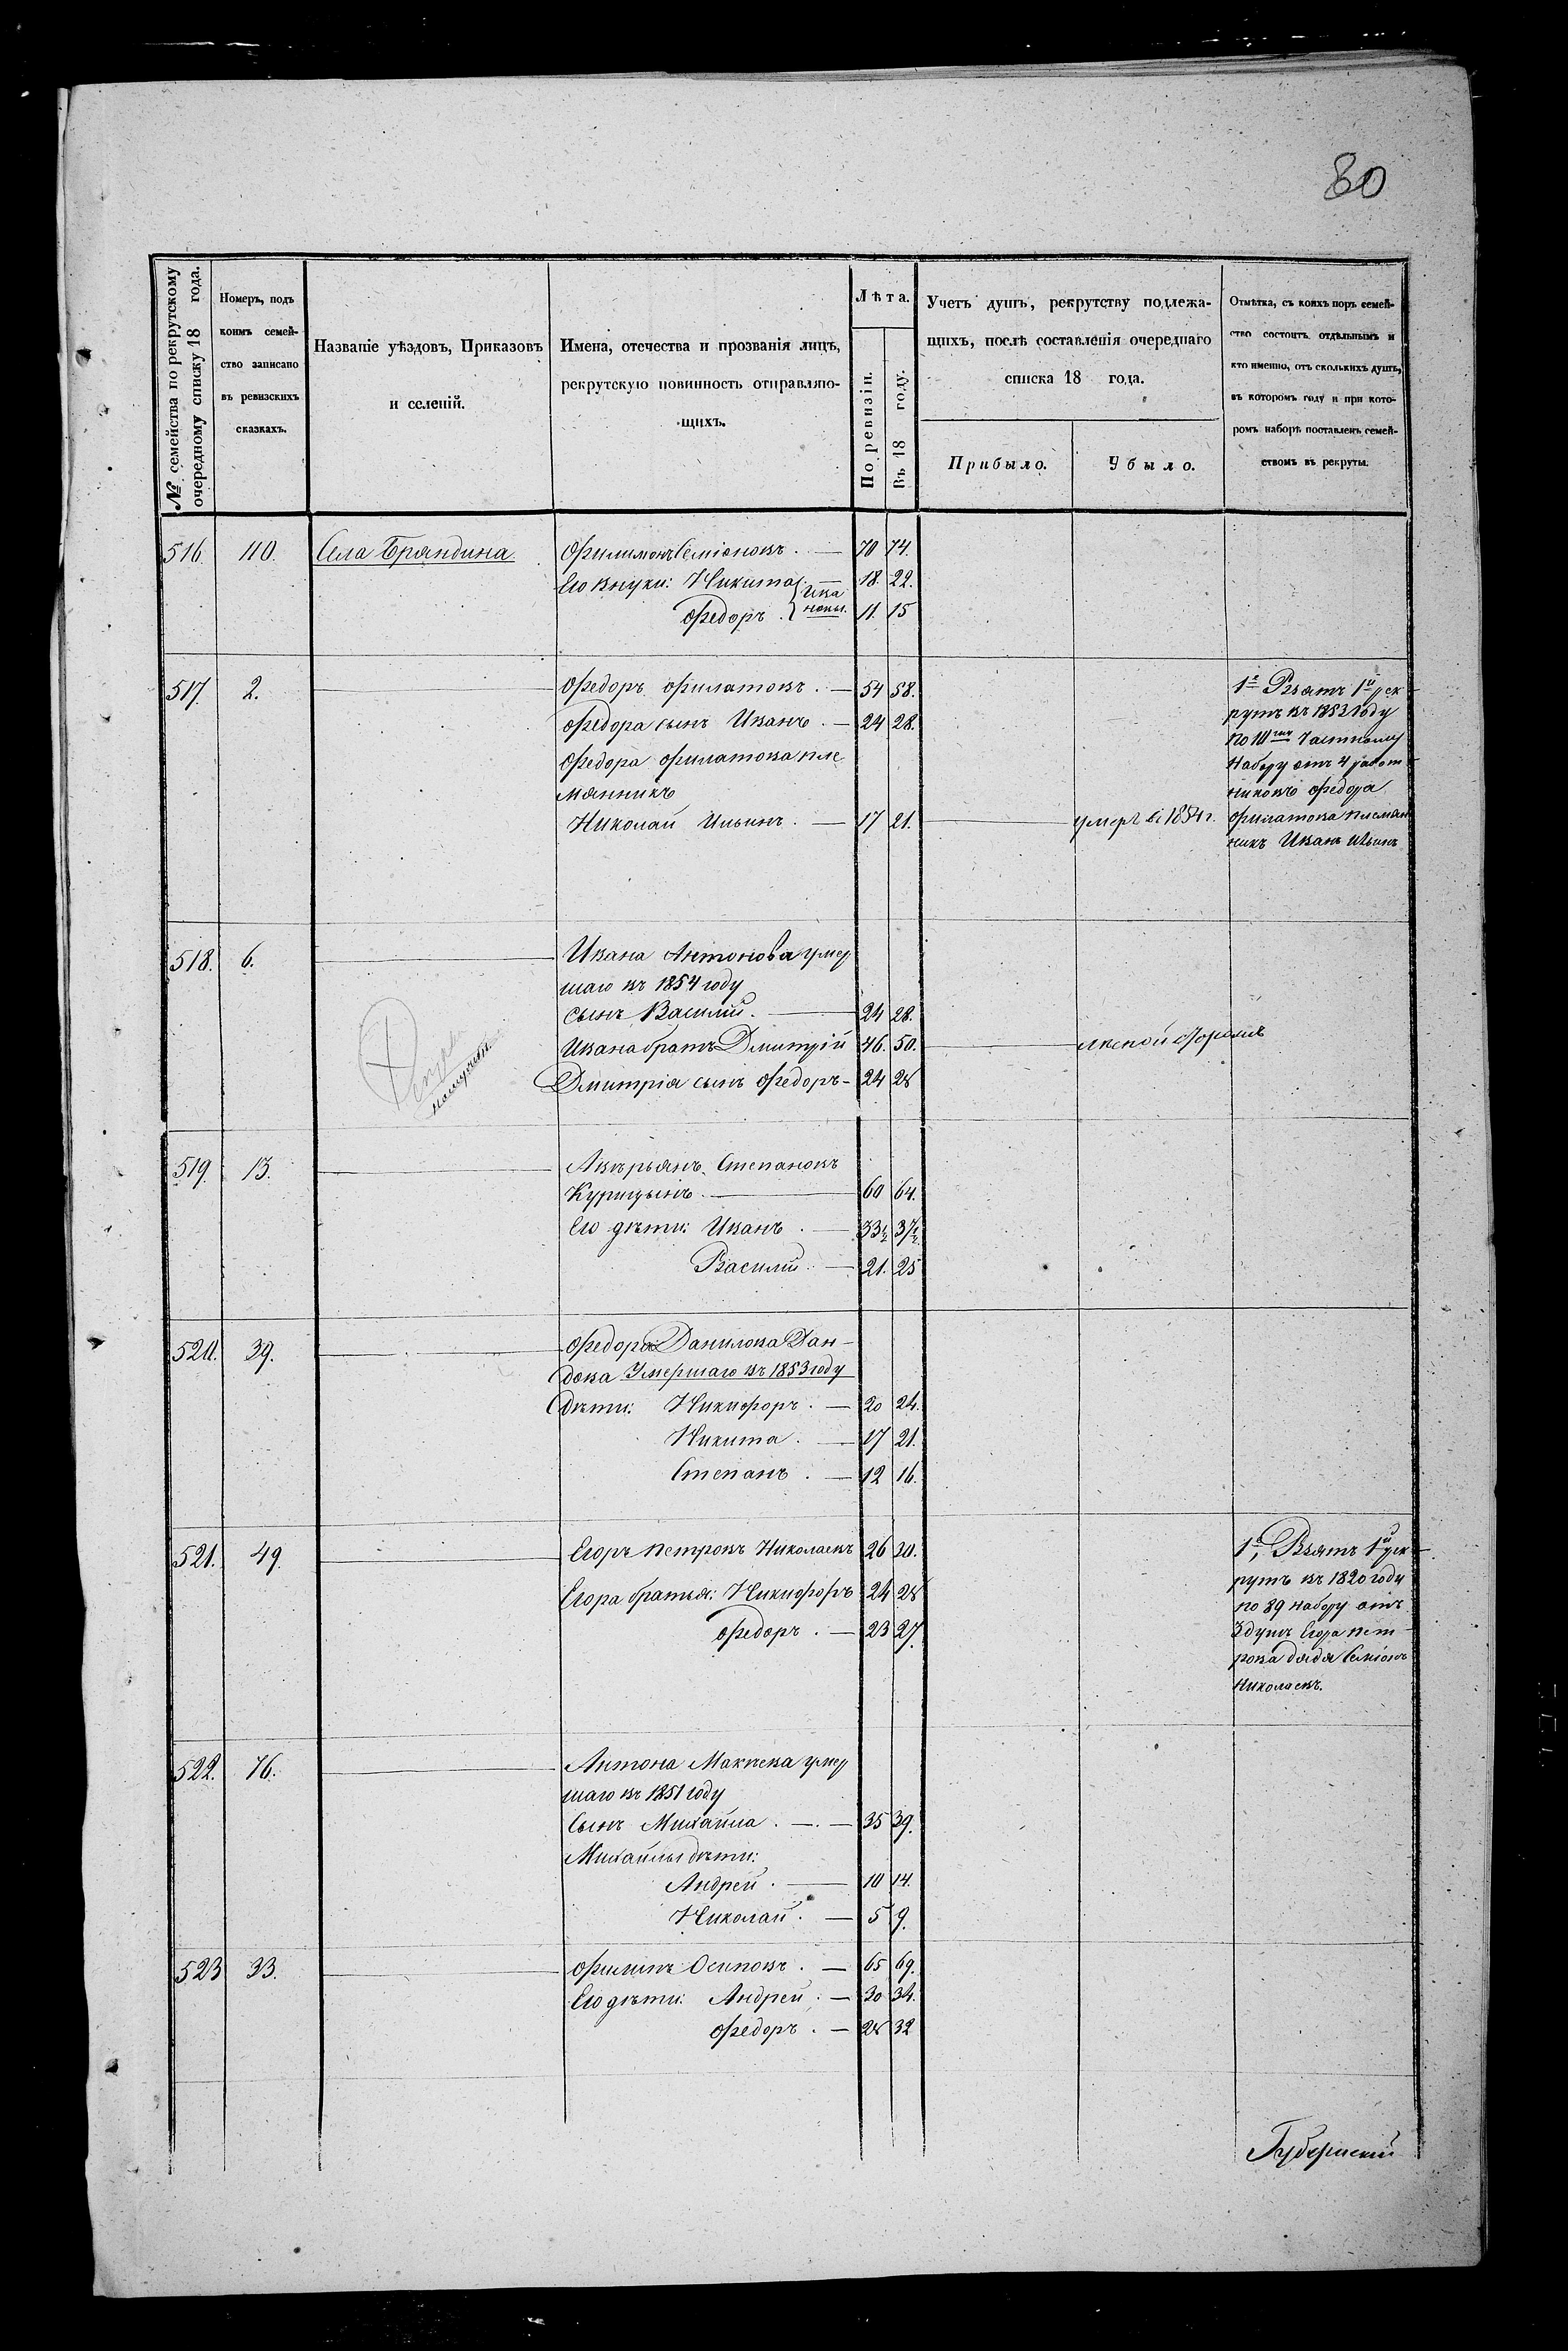 80
№ семейства по рекрутскому
очередному списку 18 года.
Номеръ, подъ
коимъ семей-
ство записано
въ ревизскихъ
сказкахъ.
Названіе уѣздовъ, Приказовъ
и селеній.
Имена, отечества и прозванія лицъ,
рекрутскую повинность отправляю-
щихъ.
Лѣта.
По ревизіи.
Въ 18 году.
Учетъ душъ, рекрутству подлежа-
щихъ, послѣ составленія очереднаго
списка 18 года.
Прибыло.
Убыло.
Отмѣтка, съ коихъ поръ семей-
ство состоитъ отдѣльнымъ и
кто именно, отъ сколькихъ душъ,
въ которомъ году и при кото-
ромъ наборѣ поставленъ семей-
ствомъ въ рекруты.
516. 110. Села Бряндина. Филимонъ Семіоновъ. 70 74.
Его внуки: Никита 18. 22.
Ива
новы.
Федоръ. 11. 15
517. 2. Федоръ Филатовъ. 54 58.
Федора сынъ Иванъ. 24 28.
Федора Филатова пле
мянникъ
Николай Ильинъ. 17 21. умеръ въ 1854 г.
1е Взятъ 1й рек
рутъ въ 1853 году
по 10 частному
набору отъ 4 работ
никовъ Федора
Филатова племян
никъ Иванъ Ильинъ
518. 6. Ивана Антонова умер
шаго въ 1854 году
сынъ Василій. 24 28.
Ивана братъ Дмитрій 46. 50.
Дмитрія сынъ Федоръ 24 28
519. 13. Аверьянъ Степановъ
Курицынъ. 60 64.
Его дѣти: Иванъ. 33½ 37½
Василій. 21. 25
520. 39. Федора Данилова Дан-
дова Умершаго въ 1853 году
дѣти: Никифоръ. 20 24.
Никита. 17 21.
Степанъ. 12 16.
521. 49 Егоръ Петровъ Николаевъ 26 30.
Егора братья: Никифоръ 24 28
Федоръ. 23 27.
1е, Взятъ 1й рек
рутъ въ 1820 году
по 89 набору отъ
3 душъ Егора Пет-
рова дядя Семіонъ
Николаевъ.
522. 76. Антона Макѣева умер
шаго въ 1851 году
Сынъ Михайла. 35 39.
Михайлы дѣти:
Андрей. 10 14.
Николай. 5 9.
523 33. Филипъ Осиповъ. 65 69.
Его дѣти: Андрей. 30 34.
Федоръ. 28 32
Губернскій